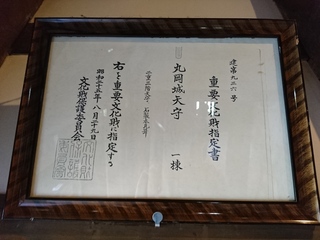 建第九三六号
重要文化財指定書
丸岡城天守 一棟
二重三階天守、石製本瓦葺
右を重要文化財に指定する
昭和二十五年八月二十九日
文化財保護委員会